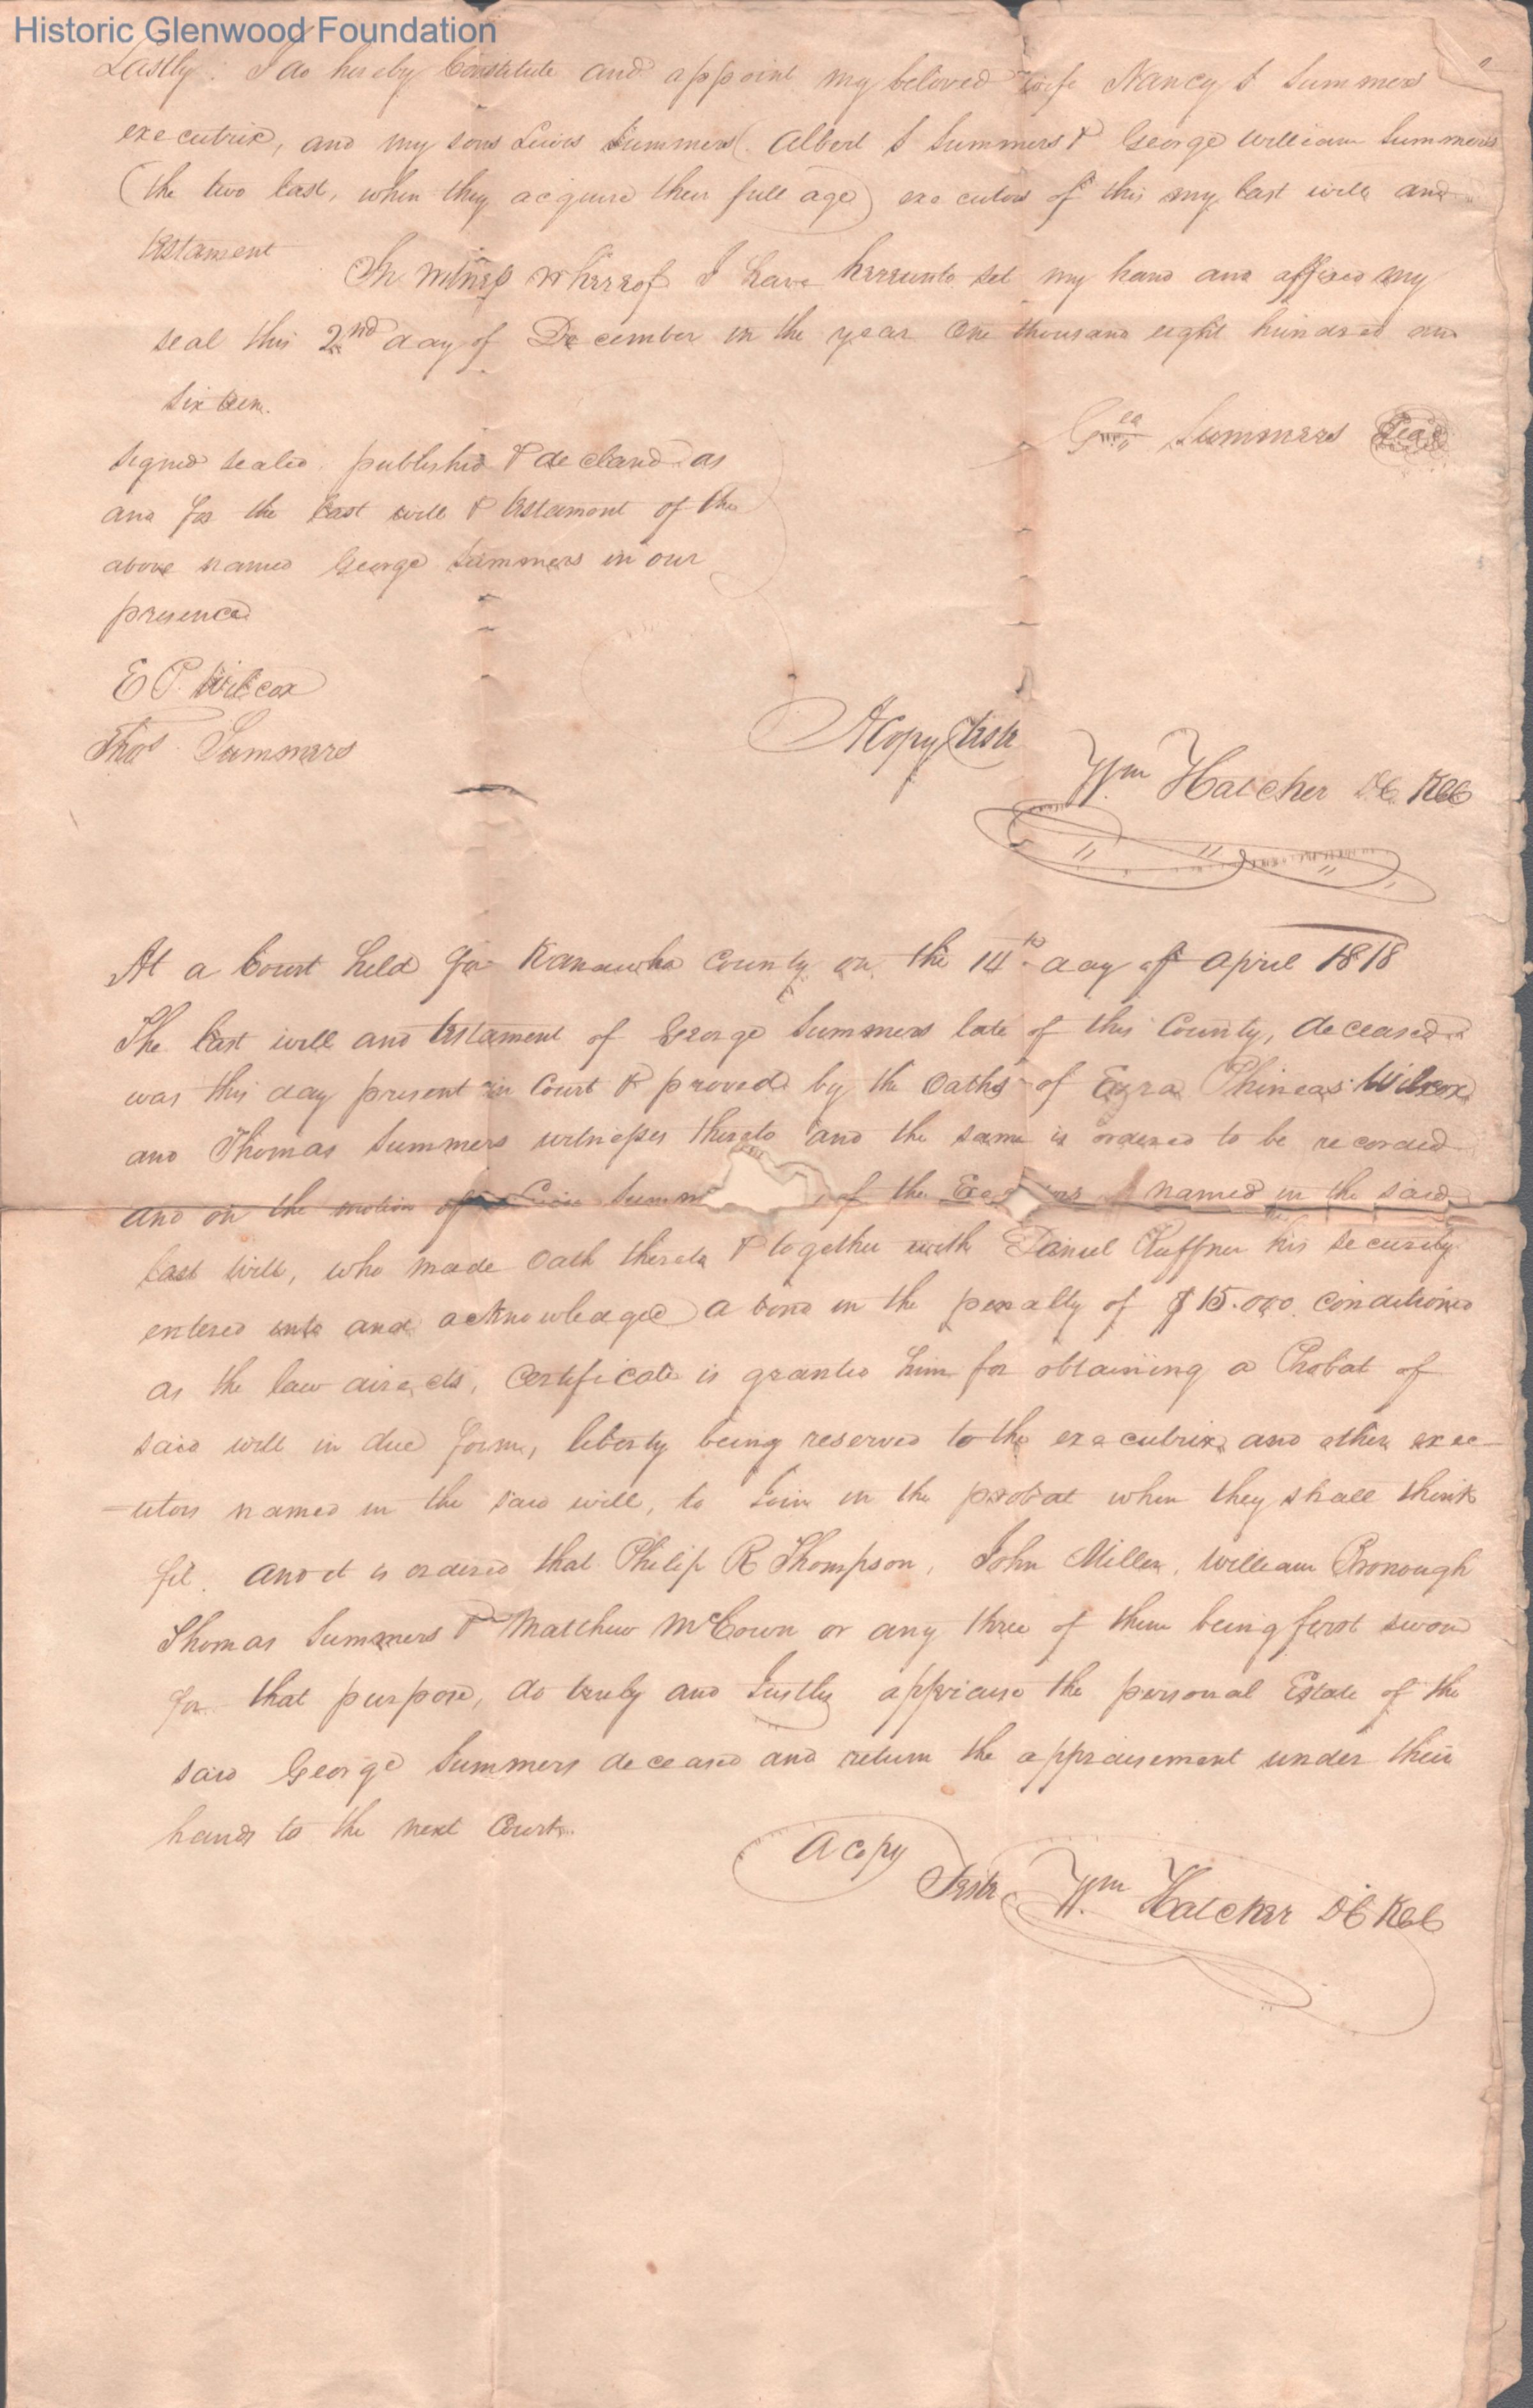 Historic Glenwood Foundation
Lastly. I do hereby Constitute and appoint my beloved wife Nancy S Summers
executrix, and my sons Lewis Summers (Albert S Summers & George William Summers
(the two last, when they acquire their full age) executors of this my last will and
testament
In witness whereof I have hereunto set my hand and affixed my
seal this 2nd day of December in the year One thousand eight hundred and
sixteen.
Geo Summers Seal
signed sealed published & declared as
and for the last will & testament of the
above named George Summers in our
presence
E P. Wilcox
Thos Summers
A Copy Teste
Wm Hatcher DC KCC
At a Court held for Kanawha County on the 14th day of April 1818
The last will and testament of George Summers late of this County, deceased
was this day present in Court & proved by the Oaths of Ezra Phineas Wilcox
and Thomas Summers witnesses thereto and the same is ordered to be recorded
and on the motion of Lewis Summ of the named in the said
last will, who made Oath thereto & together with Daniel Ruffner his security
entered into and acknowledged a bond in the penalty of $15.000 conditioned
as the law directs, Certificate is granted him for obtaining a Probat of
said will in due form, liberty being reserved to the executrix and other exec
-utors named in the said will, to Join in the probat when they shall think
fit. and it is ordered that Philip R Thompson, John Miller, William Bronough
Thomas Summers & Matthew McCown or any three of them being first sworn
for that purpose, do truly and Justly appriause the personal Estate of the
said George Summers deceased and return the appraisement under their
hands to the next Court.
A Copy
Teste Wm Hatcher DC KCC